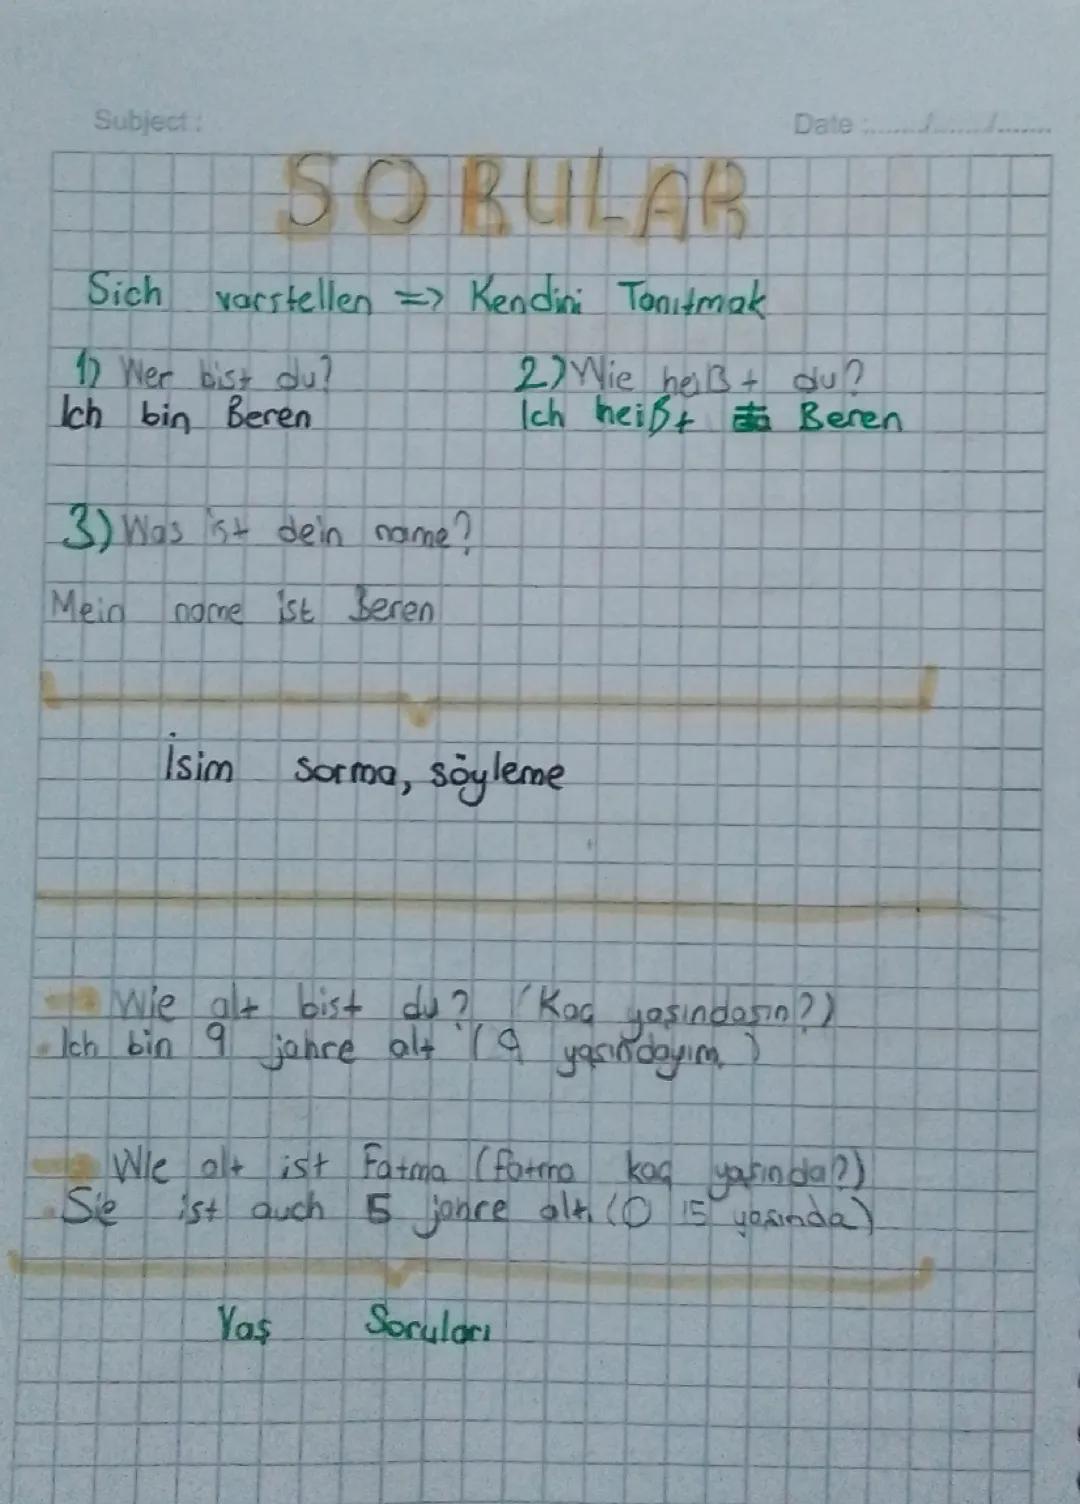 Subject: Date :....../....../.......
SORULAR
Sich vorstellen => Kendini Tanıtmak
1) Wer bist du? 2) Wie heißt du?
Ich bin Beren Ich heißt Beren
3) Was ist dein name?
Mein name ist Beren
İsim sorma, söyleme
Wie alt bist du? (Kaç yaşındasın?)
Ich bin 9 jahre alt (9 yaşındayım)
Wie alt ist Fatma (fatma kaç yaşında?)
Sie ist auch 5 jahre alt (O 15 yaşında)
Yaş Soruları